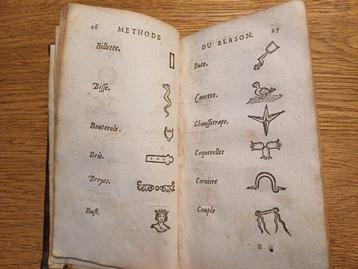 26 METHODE
Billette.
Bisse.
Bouterole.
Brie.
Broyes.
Bust.
DU BLASON. 27
Bute.
Canette.
Chaussetrape.
Coquerelles
Corniere
Couple